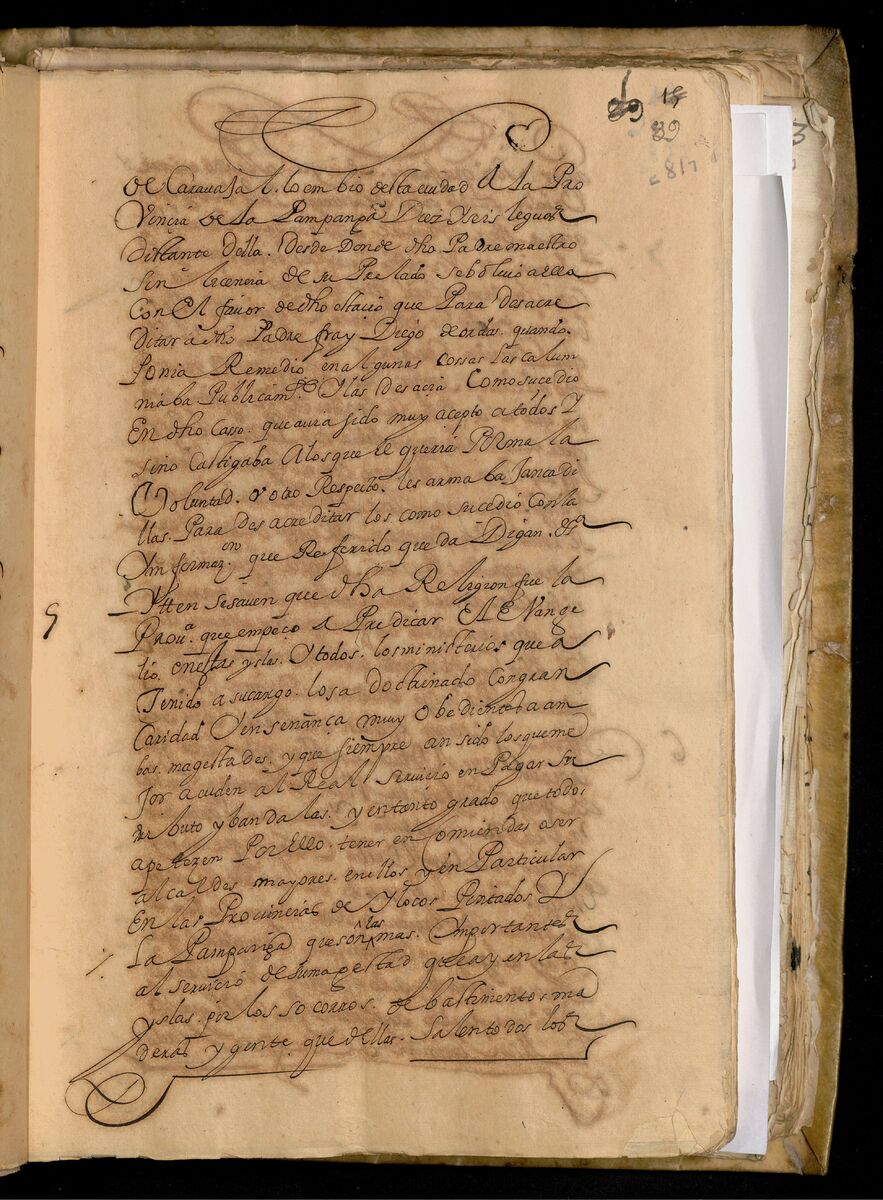 19
89
89
817
3
de Carauajal. lo embio desta ciudad A La Pro
Vincia de La Pampanga Diez y seis leguas
distante della. desde Donde dho Padre maestro
sin licencia de su Prelado se boluio a ella
Con El fauor de dho octauio que Para desacre
ditar a dho Padre fray Diego de ordas. quando.
Ponia Remedio en algunas cossas las calum
niaba Publicamte. Y las desacia Como sucedio
En dho Casso. que auia sido muy acepto a todos Y
sino Castigaba A los que el queria Por mala
Voluntad. y otro Respecto. les armaba
llas. Para desacreditar los como sucedio con la
Ynformazon. que Referido queda Digan. &ª
5
Ytten se sauen que dha Religion fue la
Prouª. que empeço a Predicar El Evange
lio. en estas yslas. Y todos. los ministerios que a
Tenido a su cargo. los a doctrinado Con gran
Caridad Y ensenança muy obedientes a am
bas. magestades. y que siempre an sido los que me
Jor acuden al Real servicio en Pagar su
tributo y bandalas. y en tanto grado que todos
apetezen Por ello. tener encomiendas o ser
alcaldes mayores. en ellos y en Particular
En las Prouincias de Ylocos Pintados Y
La Pampanga que son las mas. Ymportantes
al seruicio de su magestad que ay en las
yslas. por los socorros. de bastimentos ma
deras y gente. que dellas. Salen todos los